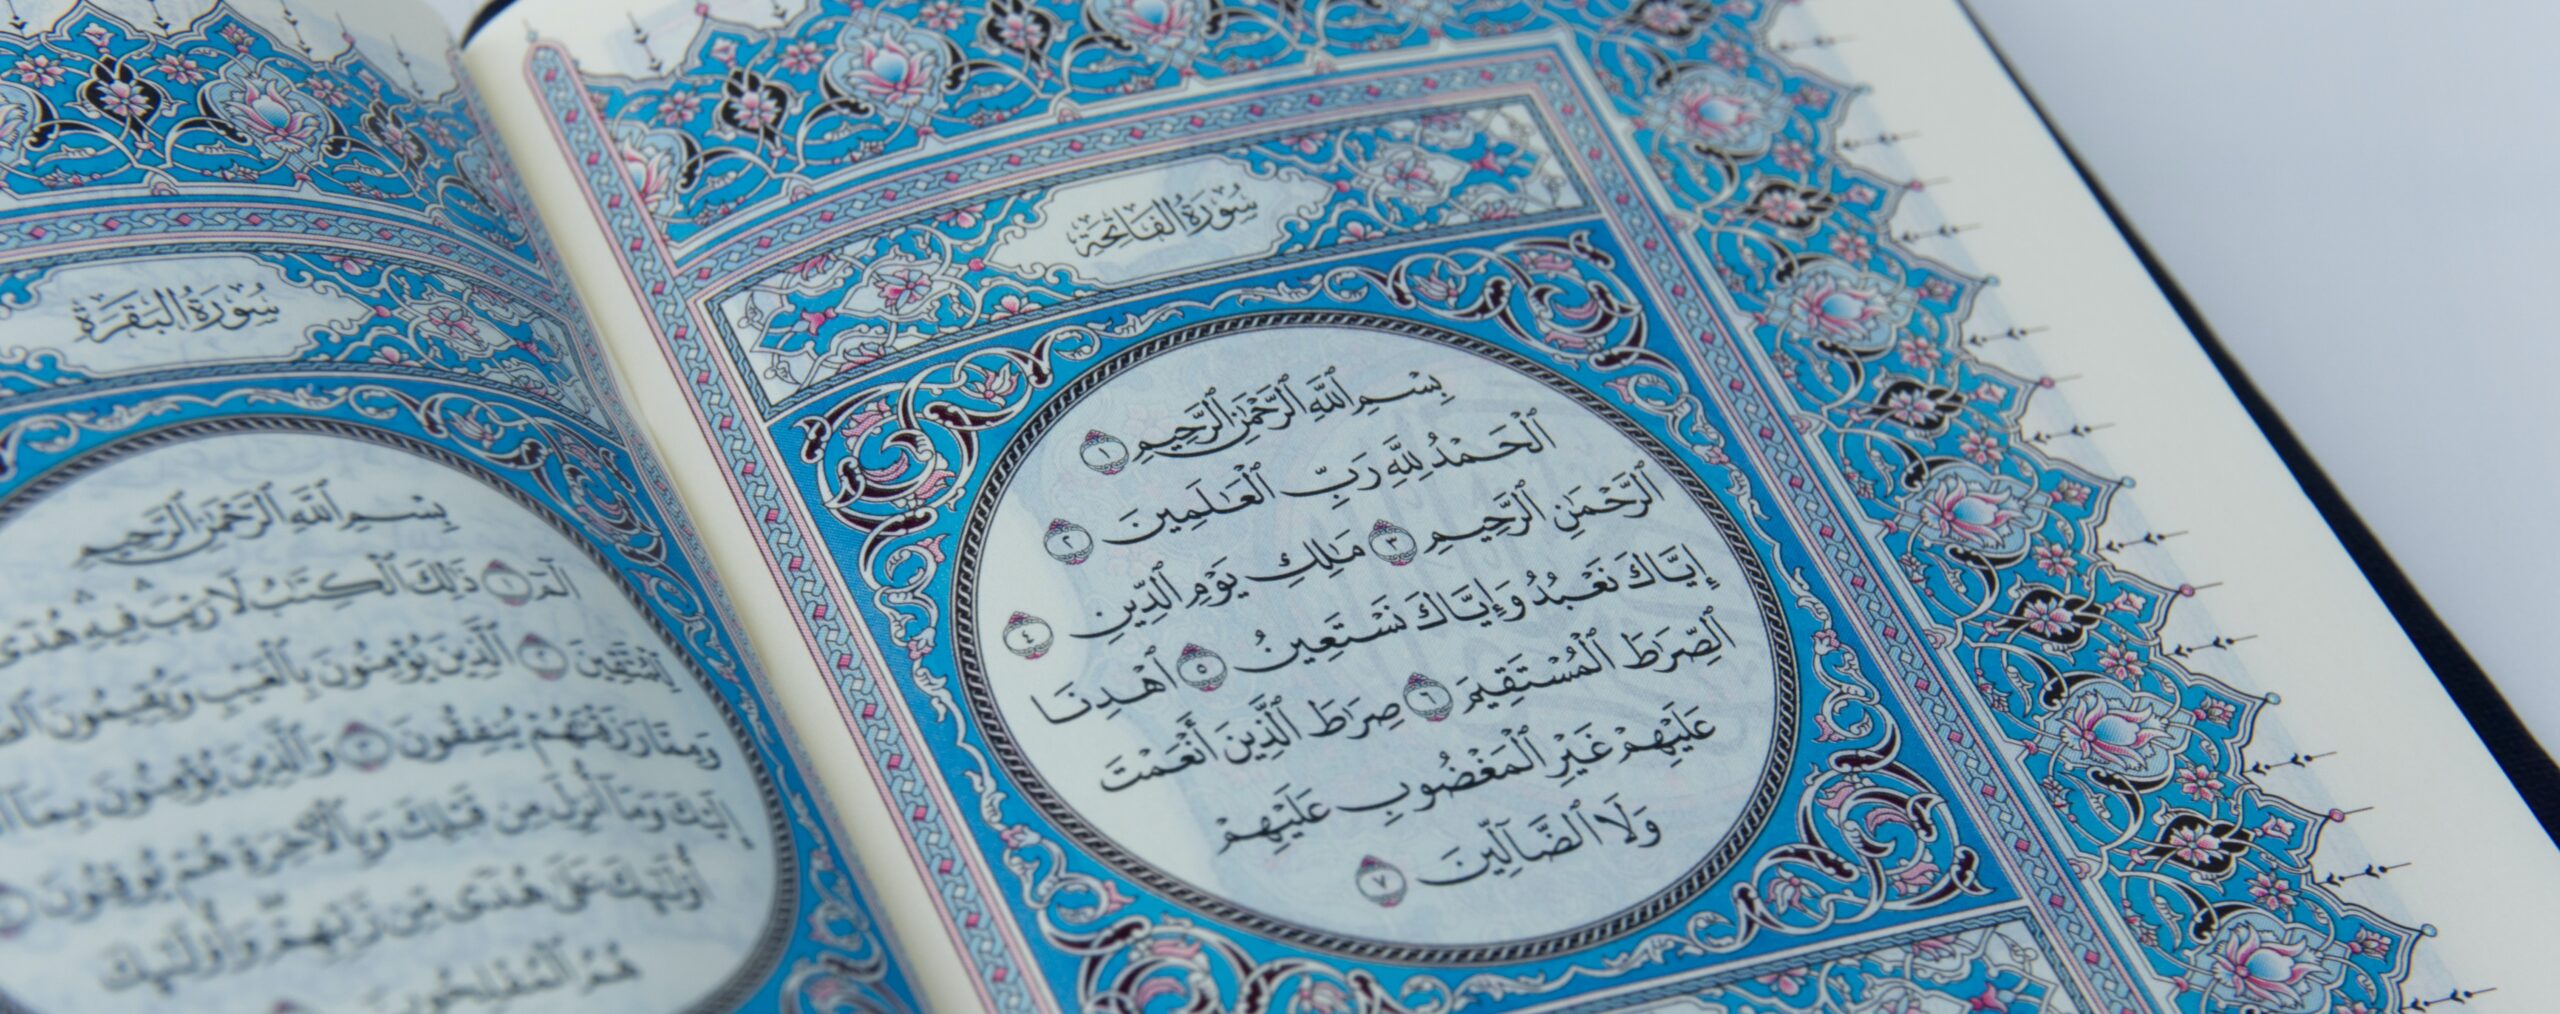 سُورَةُ الفَاتِحَةِ
بِسْمِ ٱللَّهِ ٱلرَّحْمَٰنِ ٱلرَّحِيمِ ١
ٱلْحَمْدُ لِلَّهِ رَبِّ ٱلْعَٰلَمِينَ ٢
ٱلرَّحْمَٰنِ ٱلرَّحِيمِ ٣ مَٰلِكِ يَوْمِ ٱلدِّينِ ٤
إِيَّاكَ نَعْبُدُ وَإِيَّاكَ نَسْتَعِينُ ٥ ٱهْدِنَا
ٱلصِّرَٰطَ ٱلْمُسْتَقِيمَ ٦ صِرَٰطَ ٱلَّذِينَ أَنْعَمْتَ
عَلَيْهِمْ غَيْرِ ٱلْمَغْضُوبِ عَلَيْهِمْ
وَلَا ٱلضَّآلِّينَ ٧
سُورَةُ البَقَرَةِ
بِسْمِ ٱللَّهِ ٱلرَّحْمَٰنِ ٱلرَّحِيمِ
الٓمٓ ١ ذَٰلِكَ ٱلْكِتَٰبُ لَا رَيْبَ فِيهِ هُدًى
لِّلْمُتَّقِينَ ٢ ٱلَّذِينَ يُؤْمِنُونَ بِٱلْغَيْبِ وَيُقِيمُونَ
وَمِمَّا رَزَقْنَٰهُمْ يُنفِقُونَ ٣ وَٱلَّذِينَ يُؤْمِنُونَ بِمَآ
إِلَيْكَ وَمَآ أُنزِلَ مِن قَبْلِكَ وَبِٱلْءَاخِرَةِ هُمْ يُوقِنُونَ
أُو۟لَٰٓئِكَ عَلَىٰ هُدًى مِّن رَّبِّهِمْ وَأُو۟لَٰٓئِكَ
هُمُ ٱلْمُفْلِحُونَ